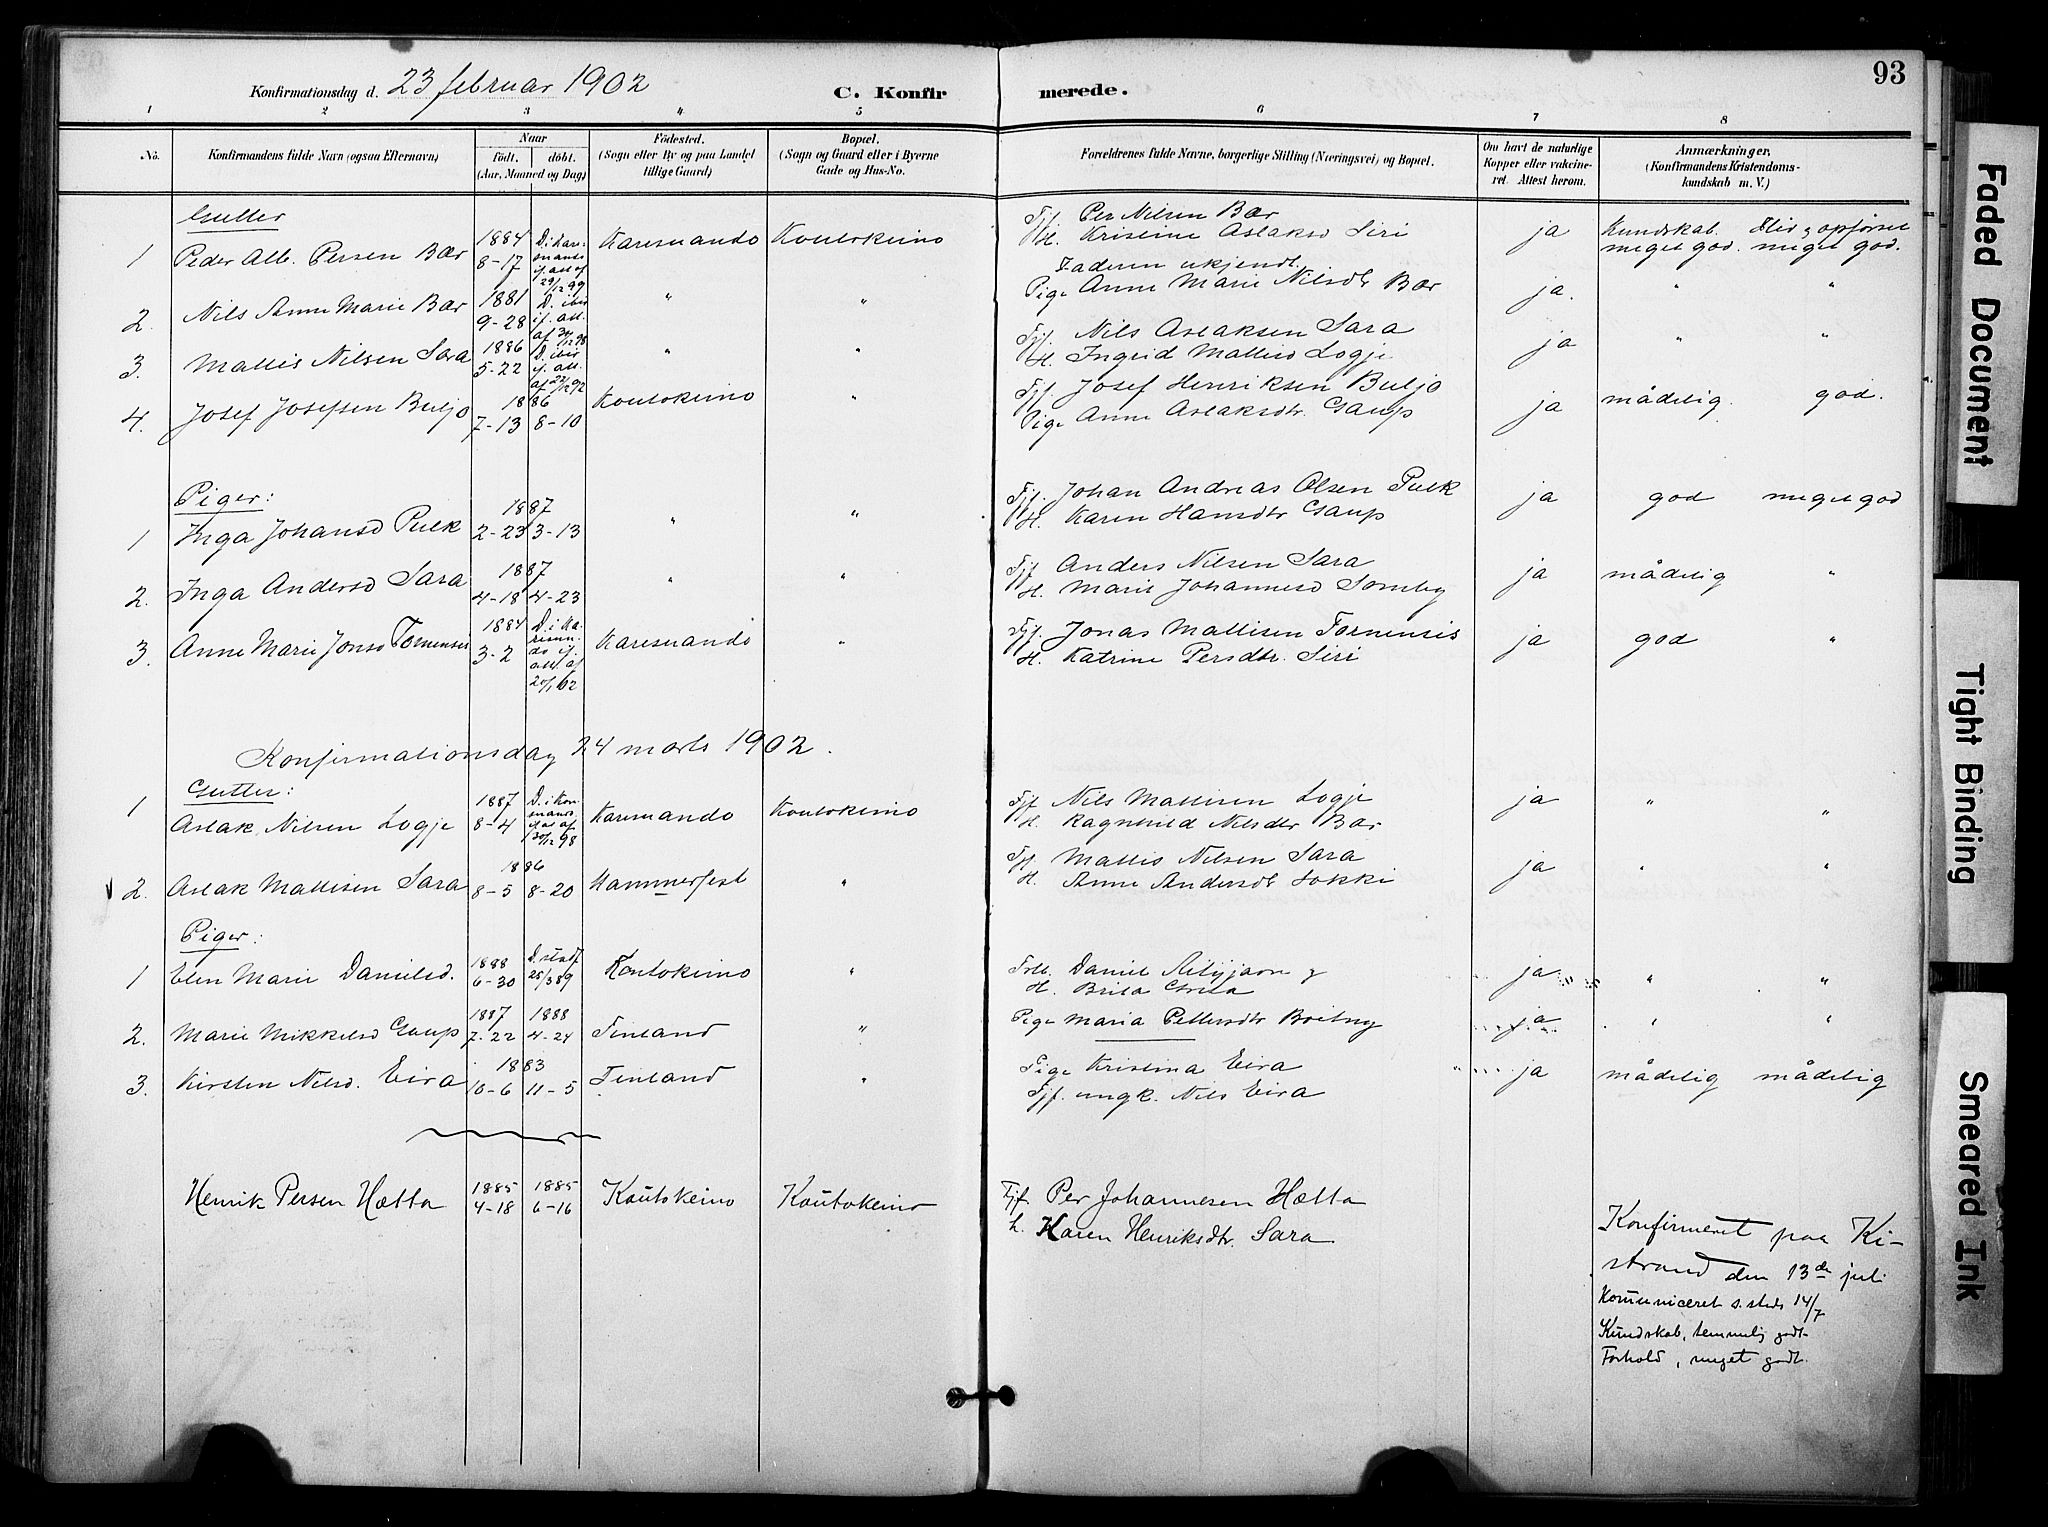 93
Konfirmationsdag d. 23 februar 1902 C. Konfirmerede.
1 2 3 4 5 6 7 8
No. Konfirmandens fulde Navn (ogsaa Efternavn) Naar født. døbt. (Aar, Maaned og Dag) Fødested. (Sogn eller By og paa Landet tillige Gaard) Bopæl. (Sogn og Gaard eller i Byerne Gade og Hus-No. Forældrenes fulde Navne, borgerlige Stilling (Næringsvei) og Bopæl. Om havt de naturlige Kopper eller vakcineret. Attest herom. Anmærkninger. (Konfirmandens Kristendomskundskab m. V.)
Gutter
1 Peder Atb. Persen Bær 1884 8-17 D. i Karesuando if. att af 29/12 99 Karesuando Koutokeino Fjf. Per Nilsen Bær H. Kristine Aslaksd Siri ja Kundskab. meget god. Flid og opførsel meget god.
2. Nils Anne Marie Bær 1881 9-28 D. ibid if. att. af 30/12 98 " " Faderen ukjendt. Pige Anne Marie Nilsdt Bær ja. " "
3. Mattis Nilsen Sara 1886 5-22 D. ibid if. att. af 22/12 92 " " Fjf. Nils Aslaksen Sara H. Ingrid Mattisd Logje ja " "
4. Josef Josefsen Buljo 1886 7-13 8-10 Koutokeino " Fjf. Josef Henriksen Buljo Pige Anne Aslaksdtr. Gaup ja mådelig. god.
Piger:
1 Inga Johansd Pulk 1887 2-23 3-13 " " Fjf. Johan Andreas Olsen Pulk H. Karen Hansdtr Gaup ja god meget god
2. Inga Andersd Sara 1887 4-18 4-23 " " Fjf. Anders Nilsen Sara H. Marit Johannesd Somby ja mådelig "
3. Anne Marie Jonsd Tornensis 1884 3-2 D. i Karesuando if. att af 20/1 02 Karesuando " Fjf. Jonas Mattisen Tornensis H. Katrine Persdtr. Siri ja god "
Konfirmationsdag 24 marts 1902.
Gutter:
1 Aslak Nilsen Logje 1887 8-4 D. i Karesuando if att af 30/12 98 Karesuando Koutokeino Fjf Nils Mattisen Logje H. Ragnhild Nilsdtr Bær ja " "
2. Aslak Mattisen Sara 1886 8-5 8-20 Hammerfest " Fjf. Mattis Nilsen Sara H. Anne Andersdt Sokki ja " "
Piger:
1 Elen Marie Danielsd. 1888 6-30 D. 25/3 89 Koutokeino " Daniel H. Brita Greta ja " "
2. Marie Mikkelsd Gaup 1887 7-22 1888 4-24 Finland " Pige Maria Pettersdtr ja " "
3. Kirsten Nilsd. Eira 1883 10-6 11-5 Finland " Pige Kristina Eira Fjf. ungk. Nils Eira ja mådelig mådelig
Henrik Persen Hætta 1885 4-18 1885 6-16 Koutokeino Koutokeino Fjf Per Johannesen Hætta
h. Karen Henriksdtr. Sara
Konfirmeret paa Ki-
strand den 13de juli
Kommuniceret s. steds 14/7
Kundskab, temmelig godt
Forhold, meget godt.
Faded Document
Tight Binding
Smeared Ink